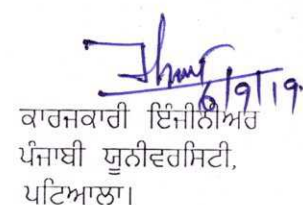 6/9/19
ਕਾਰਜਕਾਰੀ ਇੰਜੀਨੀਅਰ
ਪੰਜਾਬੀ ਯੂਨੀਵਰਸਿਟੀ,
ਪਟਿਆਲਾ।